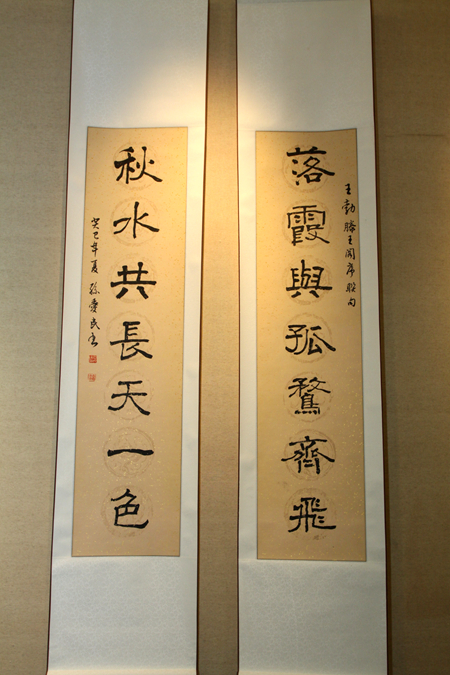 王勃滕王阁序联句
落霞與孤鶩齊飛
秋水共長天一色
癸巳年夏孙爱民书